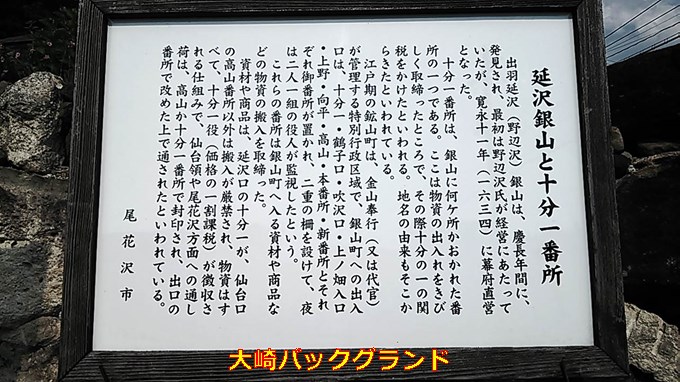 延沢銀山と十分一番所
出羽延沢（野辺沢）銀山は、慶長年間に、
発見され、最初は野辺沢氏が経営にあたって
いたが、寛永十一年（一六三四）に幕府直営
となった。
十分一番所は、銀山に何ケ所かおかれた番
所の一つである。ここは物資の出入れをきび
しく取締ったところで、その際十分の一の関
税をかけたといわれる。地名の由来もそこか
らきたといわれている。
江戸期の鉱山町は、金山奉行（又は代官）
が管理する特別行政区域で、銀山町への出入
口は、十分一・鶴子口・吹沢口・上ノ畑入口
・上野・向平・高山・本番所・新番所とそれ
ぞれ御番所が置かれ、二重の柵を設けて、夜
は二人一組の役人が監視したという。
これらの番所は銀山町へ入る資材や商品な
どの物資の搬入を取締った。
資材や商品は、延沢口の十分一が、仙台口
の高山番所以外は搬入が厳禁され、物資はす
べて、十分一役（価格の一割課税）が徴収さ
れる仕組みで、仙台領や尾花沢方面への通し
荷は、高山か十分一番所で封印され、出口の
番所で改めた上で通されたといわれている。
尾花沢市
大崎バックグランド